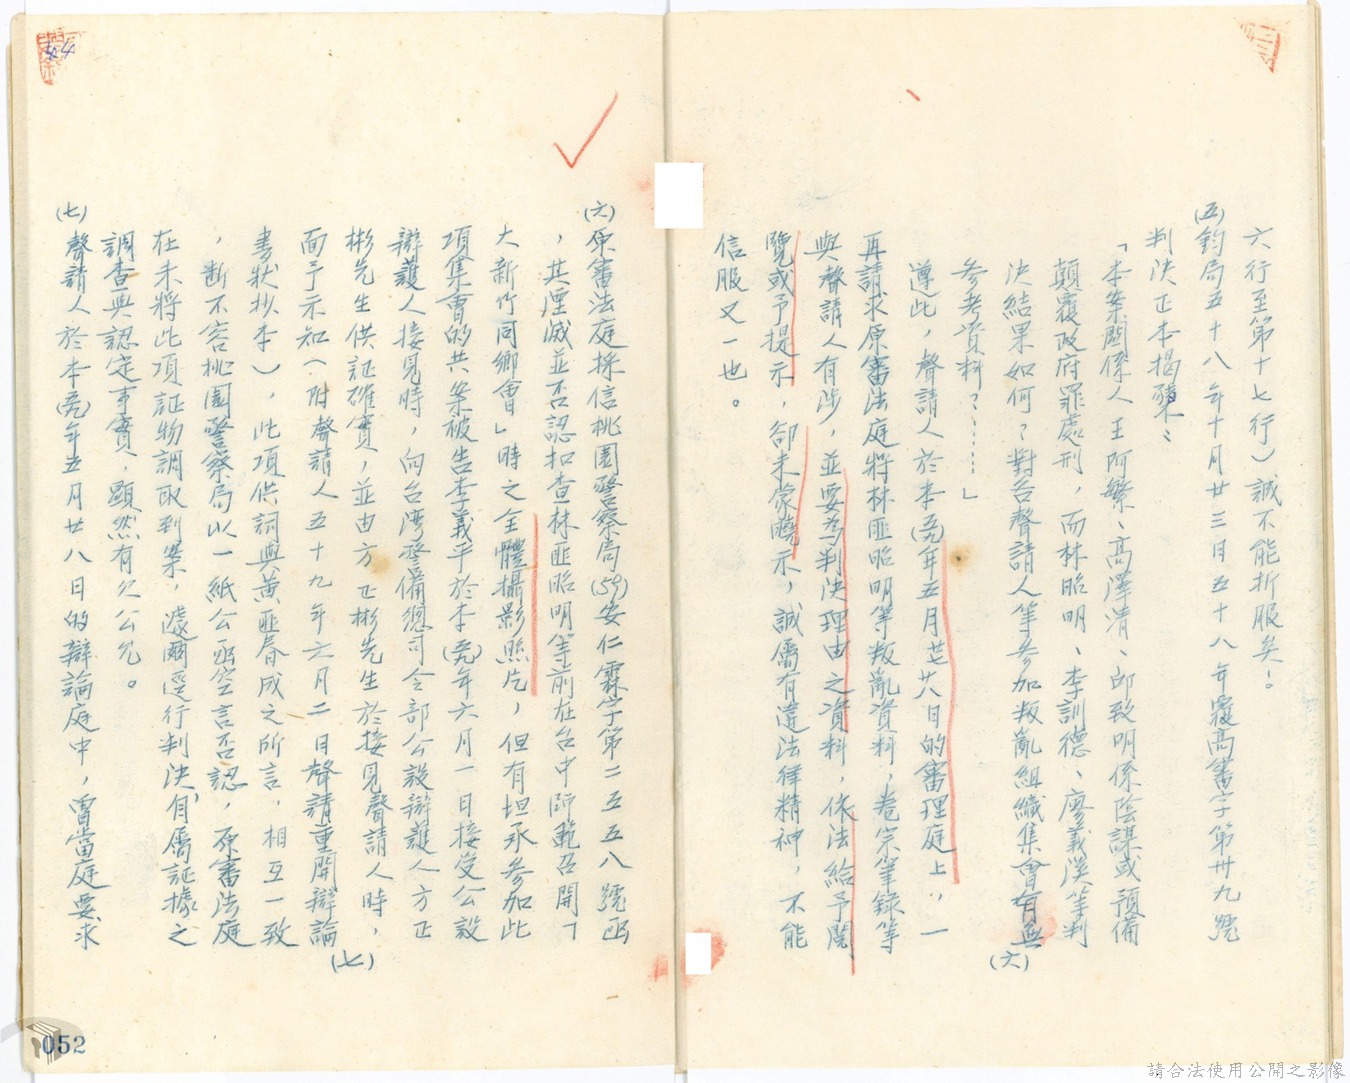 六行至第十七行)誠不能折服矣!
(五)鈞局五十八年十月廿三日五十八年覆高審字第卅九號
判決正本揭櫫:
「本案關係人王阿繁、高澤清、邱致明係陰謀或預備
顛覆政府罪處刑,而林昭明、李訓德、廖義溪等判
決結果如何?對台聲請人等參加叛亂組織集會有無
參考資料?……」
遵此,聲請人於本(59)年五月廿七廿八日的審理庭上,一
再請求原審法庭將林匪昭明等叛亂資料,卷宗筆錄等
與聲請人有涉,並要為判決理由之資料,依法給予閱
覽或予提示,卻未蒙曉示,誠屬有違法律精神,不能
信服又一也。
(六)
(六)原審法庭採信桃園警察局(59)安仁霖字第二五五八號函
,其湮滅並否認扣查林匪昭明等前在台中師範召開「
大新竹同鄉會」時之全體攝影照片,但有坦承參加此
項集會的共案被告李義平於本(59)年六月一日接受公設
辯護人接見時,向台灣警備總司令部公設辯護人方正
彬先生供証確實,並由方正彬先生於接見聲請人時,
面予示知(附聲請人五十九年六月二日聲請重開辯論
書狀抄本),此項供詞與黃匪春成之所言,相互一致
,斷不容桃園警察局以一紙公函空言否認,原審法庭
在未將此項証物調取到案,遽爾逕行判決,有屬証據之
調查與認定事實,顯然有欠公允。
(七)聲請人於本(59)年五月廿八日的辯論庭中,曾當庭要求
(七)
052
請合法使用公開之影像